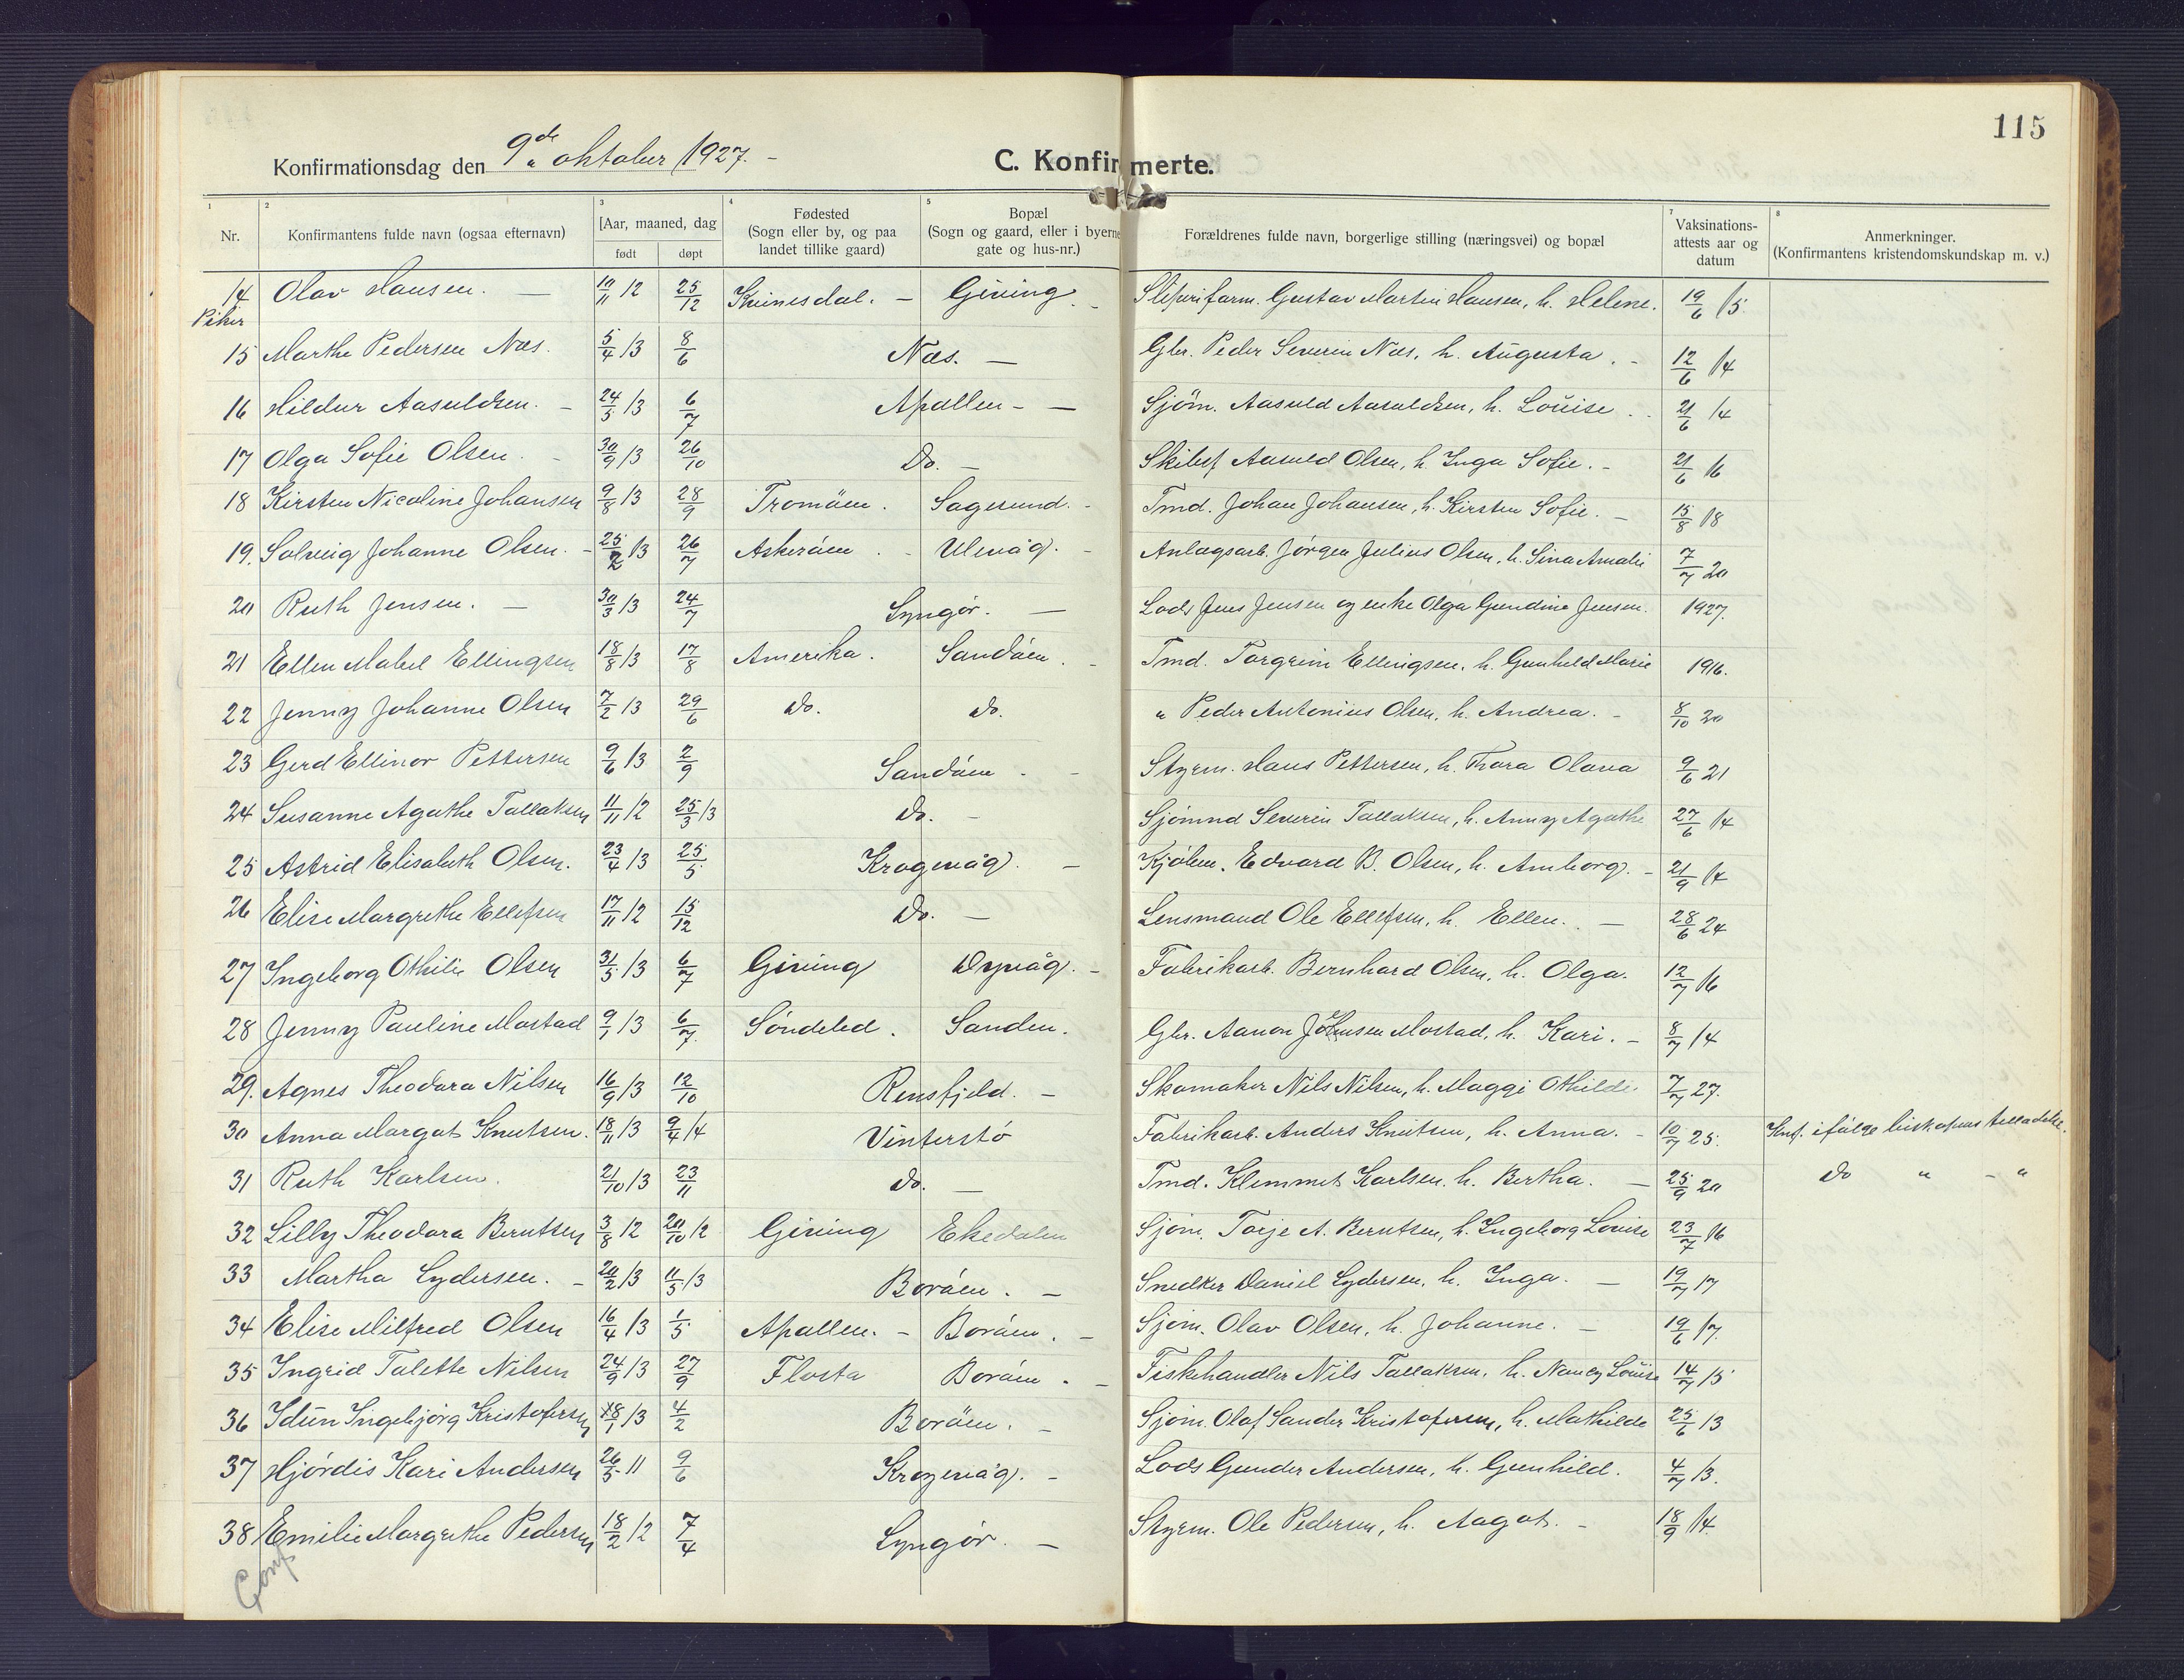 115
Konfirmationsdag den 9de oktober 1927. -
C. Konfirmerte.
1 2 3 4 5 7 8
Nr. Konfirmantens fulde navn (ogsaa efternavn) [Aar, maaned, dag født døpt Fødested (Sogn eller by, og paa landet tillike gaard) Bopæl (Sogn og gaard, eller i byerne gate og hus-nr.) Forældrenes fulde navn, borgerlige stilling (næringsvei) og bopæl Vaksinations-attests aar og datum Anmerkninger. (Konfirmantens kristendomskundskap m. v.)
14 Olav Hansen. — 10/11 12 25/12 Kvinesdal. - Giving - Sliperiform. Gustav Martin Hansen, h. Helene. 19/6 15
Piker
15 Marthe Pedersen Næs. 5/4 13 8/6 Næs. — Gbr. Peder Severin Næs, h. Augusta. - 12/6 14
16 Hildur Aasuldsen. - 24/5 13 6/7 Apallen - — Sjöm. Aasuld Aasuldsen, h. Louise. - 21/6 14
17 Olga Sofie Olsen. - 30/9 13 26/10 Do. - Skibsf Aasuld Olsen, h. Inga Sofie. - 21/6 16
18 Kirsten Nicoline Johansen 9/8 13 28/9 Tromöen. Sagesund. - Tmd. Johan Johansen, h. Kirsten Sofie. - 15/8 18
19. Solveig Johanne Olsen. - 25/2 13 26/7 Askeröen. - Ulevåg. - Anlægsarb. Jörgen Julius Olsen, h. Sina Amalie 7/7 20
20 Ruth Jensen. — 30/3 13 24/7 Lyngör. — Lods Jens Jensen og enke Olga Gundine Jensen. 1927.
21 Ellen Mabel Ellingsen 18/8 13 17/8 Amerika. Sandöen. - Tmd. Torgrim Ellingsen. h. Gunhild Marie 1916.
22 Jenny Johanne Olsen 7/2 13 29/6 do. do. " Peder Antonius Olsen, h. Andrea. - 8/10 20
23 Gerd Ellinor Pettersen 9/6 13 2/9 Sandöen. - Styrm. Hans Pettersen, h. Thora Olava 9/6 21
24 Susanne Agathe Tallaksen 11/11 12 25/3 13 do. - Sjömnd Severin Tallaksen, h. Anny Agathe 27/6 14
25 Astrid Elisabeth Olsen. 23/4 13 25/5 Krogevåg. - Kjöbm. Edvard B. Olsen, h. Amborg. - 21/9 14
26 Elise Margrethe Ellefsen 17/11 12 15/12 do. - Lensmand Ole Ellefsen, h. Ellen. - 28/6 24
27 Ingeborg Othilie Olsen 31/5 13 6/7 Giving Dypvåg. - Fabrikarb. Bernhard Olsen, h. Olga. 12/7 16
28 Jenny Pauline Mostad 9/1 13 6/7. Söndeled. Sanden. Gbr. Aanon Johnsen Mostad, h. Kari. - 8/7 14
29. Agnes Theodora Nilsen 16/9 13 12/10 Rensfjeld. - Skomaker Nils Nilsen, h. Maggi Othilde 7/7 27.
30 Anna Margot Knutsen. 18/11 13 9/4 14 Vinterstö Fabrikarb. Anders Knutsen, h. Anna. - 10/7 25. Konf. ifölge biskopens tilladelse.
31 Ruth Karlsen. 21/10 13 23/11 do. - Tmd. Klemmet Karlsen. h. Bertha. - 25/9 20 Do " - "
32 Lilly Theodora Berntsen 3/8 12 20/10 12 Giving Ekedalen Sjöm. Torje A. Berntsen, h. Ingeborg Louise 23/7 16
33 Martha Lydersen. - 20/2 13 11/5 13 Boröen. - Snedker Daniel Lydersen, h. Inga. - 19/7 17
34 Elise Milfred Olsen 16/4 13 1/5 Apallen. - Boröen. - Sjöm. Olav Olsen, h. Johanne. - 19/6 17.
35 Ingrid Talette Nilsen 24/9 13 27/9 Flosta Boröen. - Fiskehandler Nils Tallaksen, h. Nancy Louise 14/7 15
36 Idun Ingebjörg Kristofersen 18/1 13 4/2 Boröen. - Sjöm. Olaf Sander Kristofersen, h. Mathilde 25/6 13
37 Hjördis Kari Andersen 26/5 11 9/6 Krogevåg. - Lods Gunder Andersen, h. Gunhild. 4/7 13.
38 Emilie Margrethe Pedersen 18/2 12 7/4 Lyngör. - Styrm. Ole Pedersen, h. Aagot. - 18/9 14.